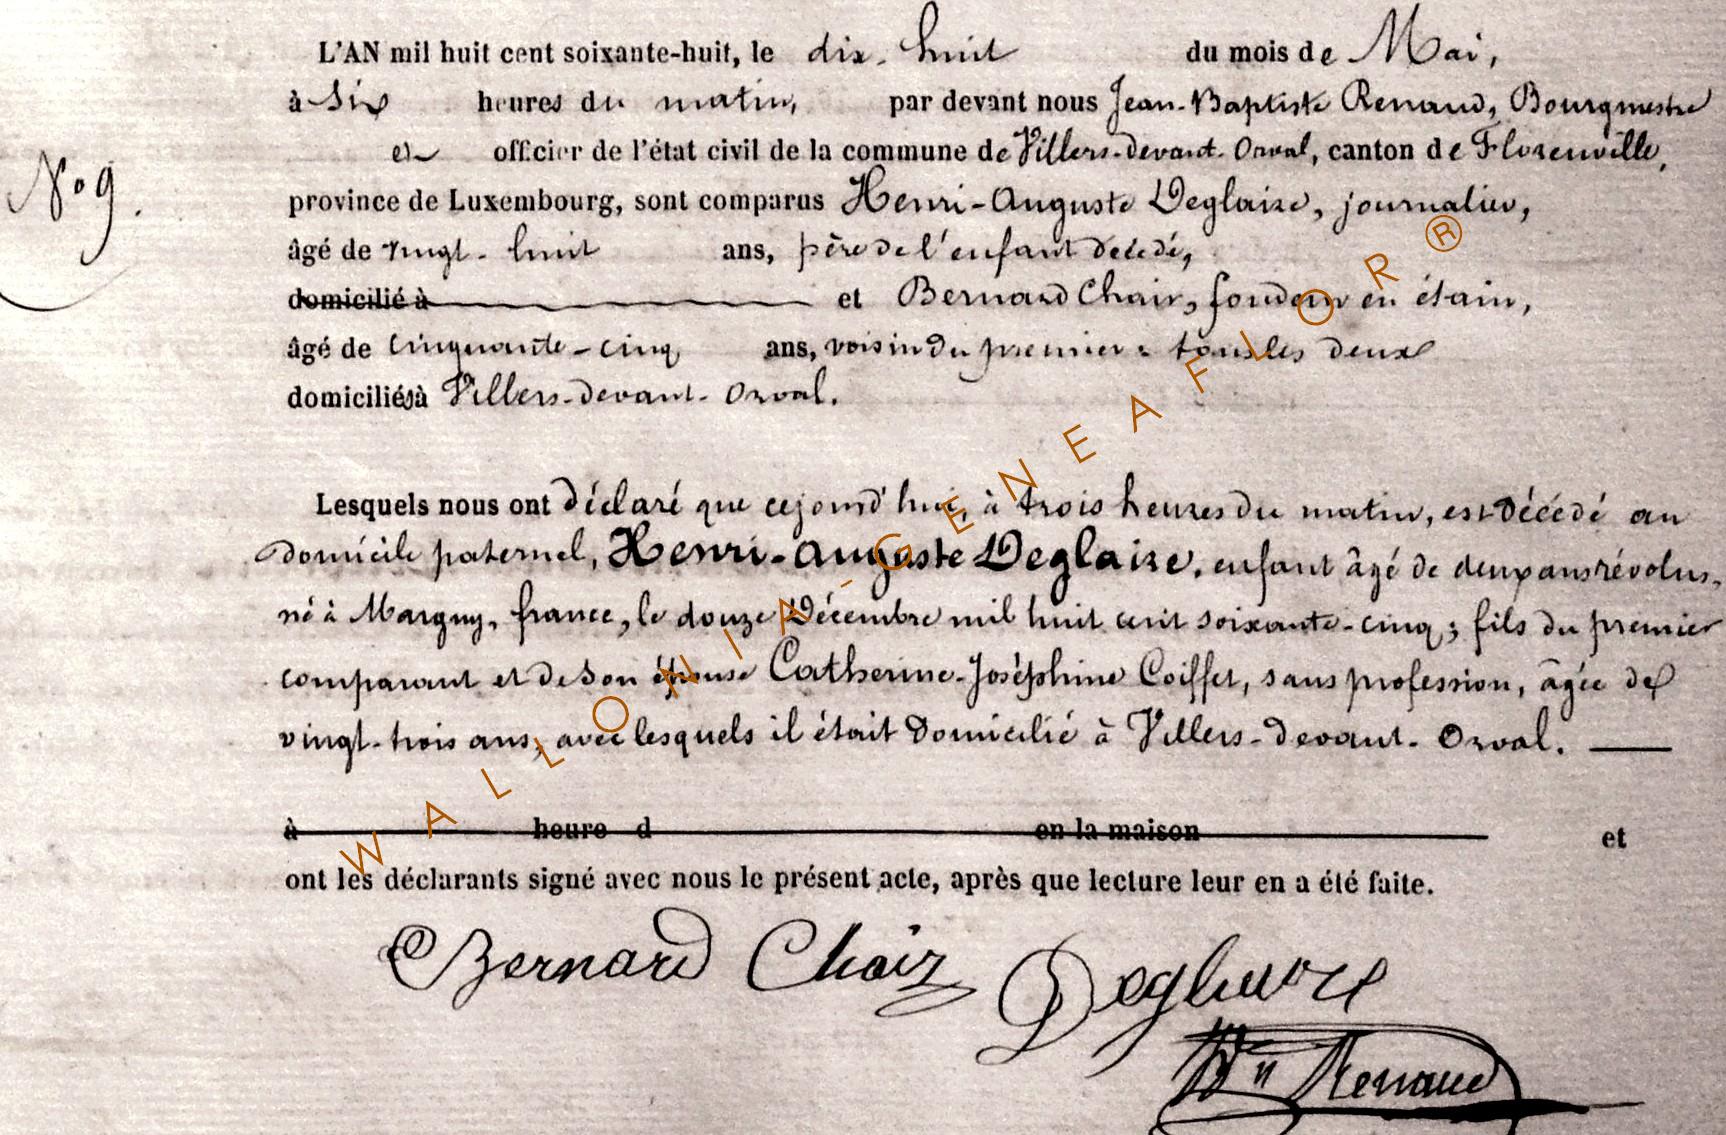 L'AN mil huit cent soixante-huit, le dix-huit du mois de Mai,
à six heures du matin, par devant nous Jean-Baptiste Renaud, Bourgmestre
No 9.
et officier de l'état civil de la commune de Villers-devant-Orval, canton de Florenville,
province de Luxembourg, sont comparus Henri-Auguste Deglaire, journalier,
âgé de vingt-huit ans, père de l'enfant décédé,
domicilié à et Bernard Chaix, fondeur en étain,
âgé de cinquante-cinq ans, voisin du premier : tous les deux
domiciliés à Villers-devant-Orval.
Lesquels nous ont déclaré que cejourd'hui, à trois heures du matin, est décédé au
domicile paternel, Henri-Auguste Deglaire, enfant âgé de deux ans révolus,
né à Margny, france, le douze Décembre mil huit cent soixante-cinq ; fils du premier
comparant et de son épouse Catherine-Joséphine Coiffet, sans profession, âgée de
vingt-trois ans, avec lesquels il était domicilié à Villers-devant-Orval.
à heure d en la maison et
ont les déclarants signé avec nous le présent acte, après que lecture leur en a été faite.
Bernard Chaix Deglaire
Renaud
WALLONIA-GENEAFLOR®